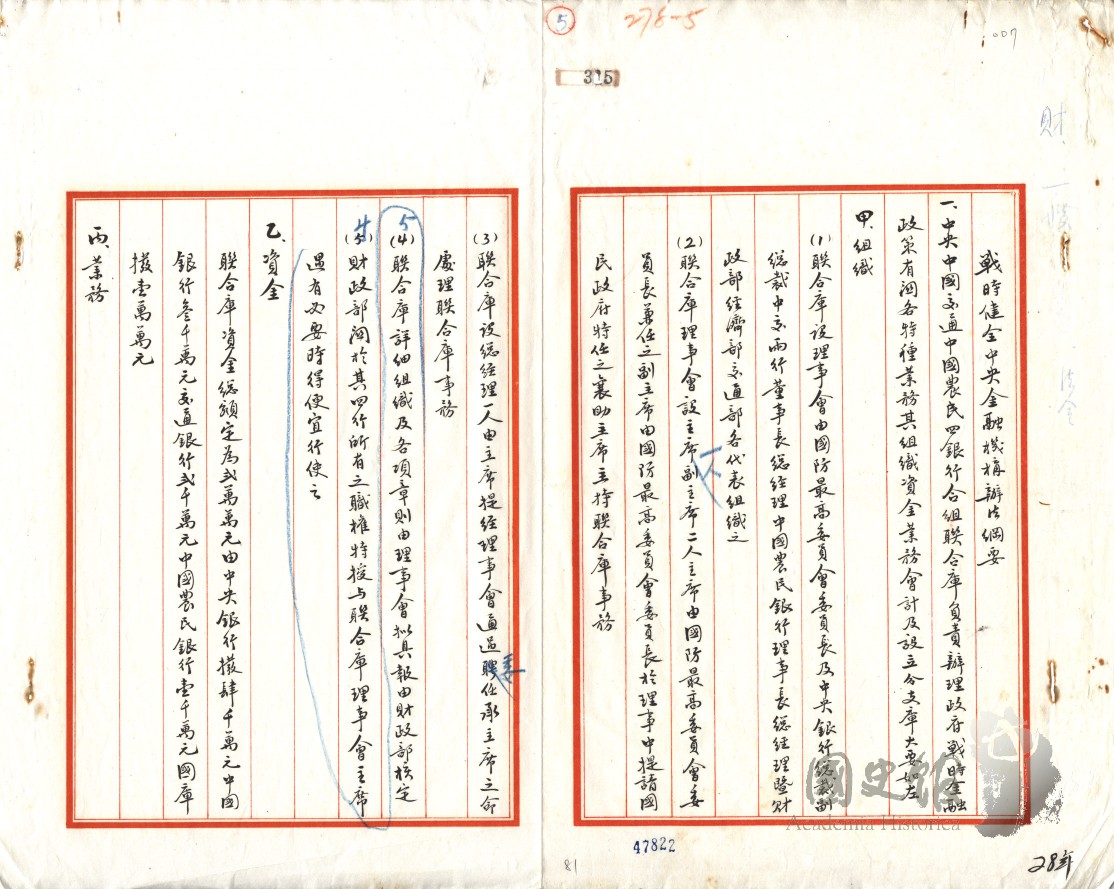 5
278-5
007
315
財
戰時健全中央金融機構辦法綱要
一、中央中國交通中國農民四銀行合組聯合庫負責辦理政府戰時金融
政策有關各特種業務其組織資金業務會計及設立分支庫大要如左
甲、組織
(1)聯合庫設理事會由國防最高委員會委員長及中央銀行總裁副
總裁中交兩行董事長總經理中國農民銀行理事長總經理暨財
政部經濟部交通部各代表組織之
(2)聯合庫理事會設主席副主席二人主席由國防最高委員會委
員長兼任之副主席由國防最高委員會委員長於理事中提請國
民政府特任之襄助主席主持聯合庫事務
47822
81
28年
國史館
Academia Historica
(3)聯合庫設總經理一人由主席提經理事會通過聘任承主席之命
委
處理聯合庫事務
5
(4)聯合庫詳細組織及各項章則由理事會擬具報由財政部核定
4
(5)財政部關於其四行所有之職權特授与聯合庫理事會主席
遇有必要時得便宜行使之
乙、資金
聯合庫資金總額定為貳萬萬元由中央銀行撥肆千萬元中國
銀行叁千萬元交通銀行貳千萬元中國農民銀行壹千萬元國庫
撥壹萬萬元
丙、業務